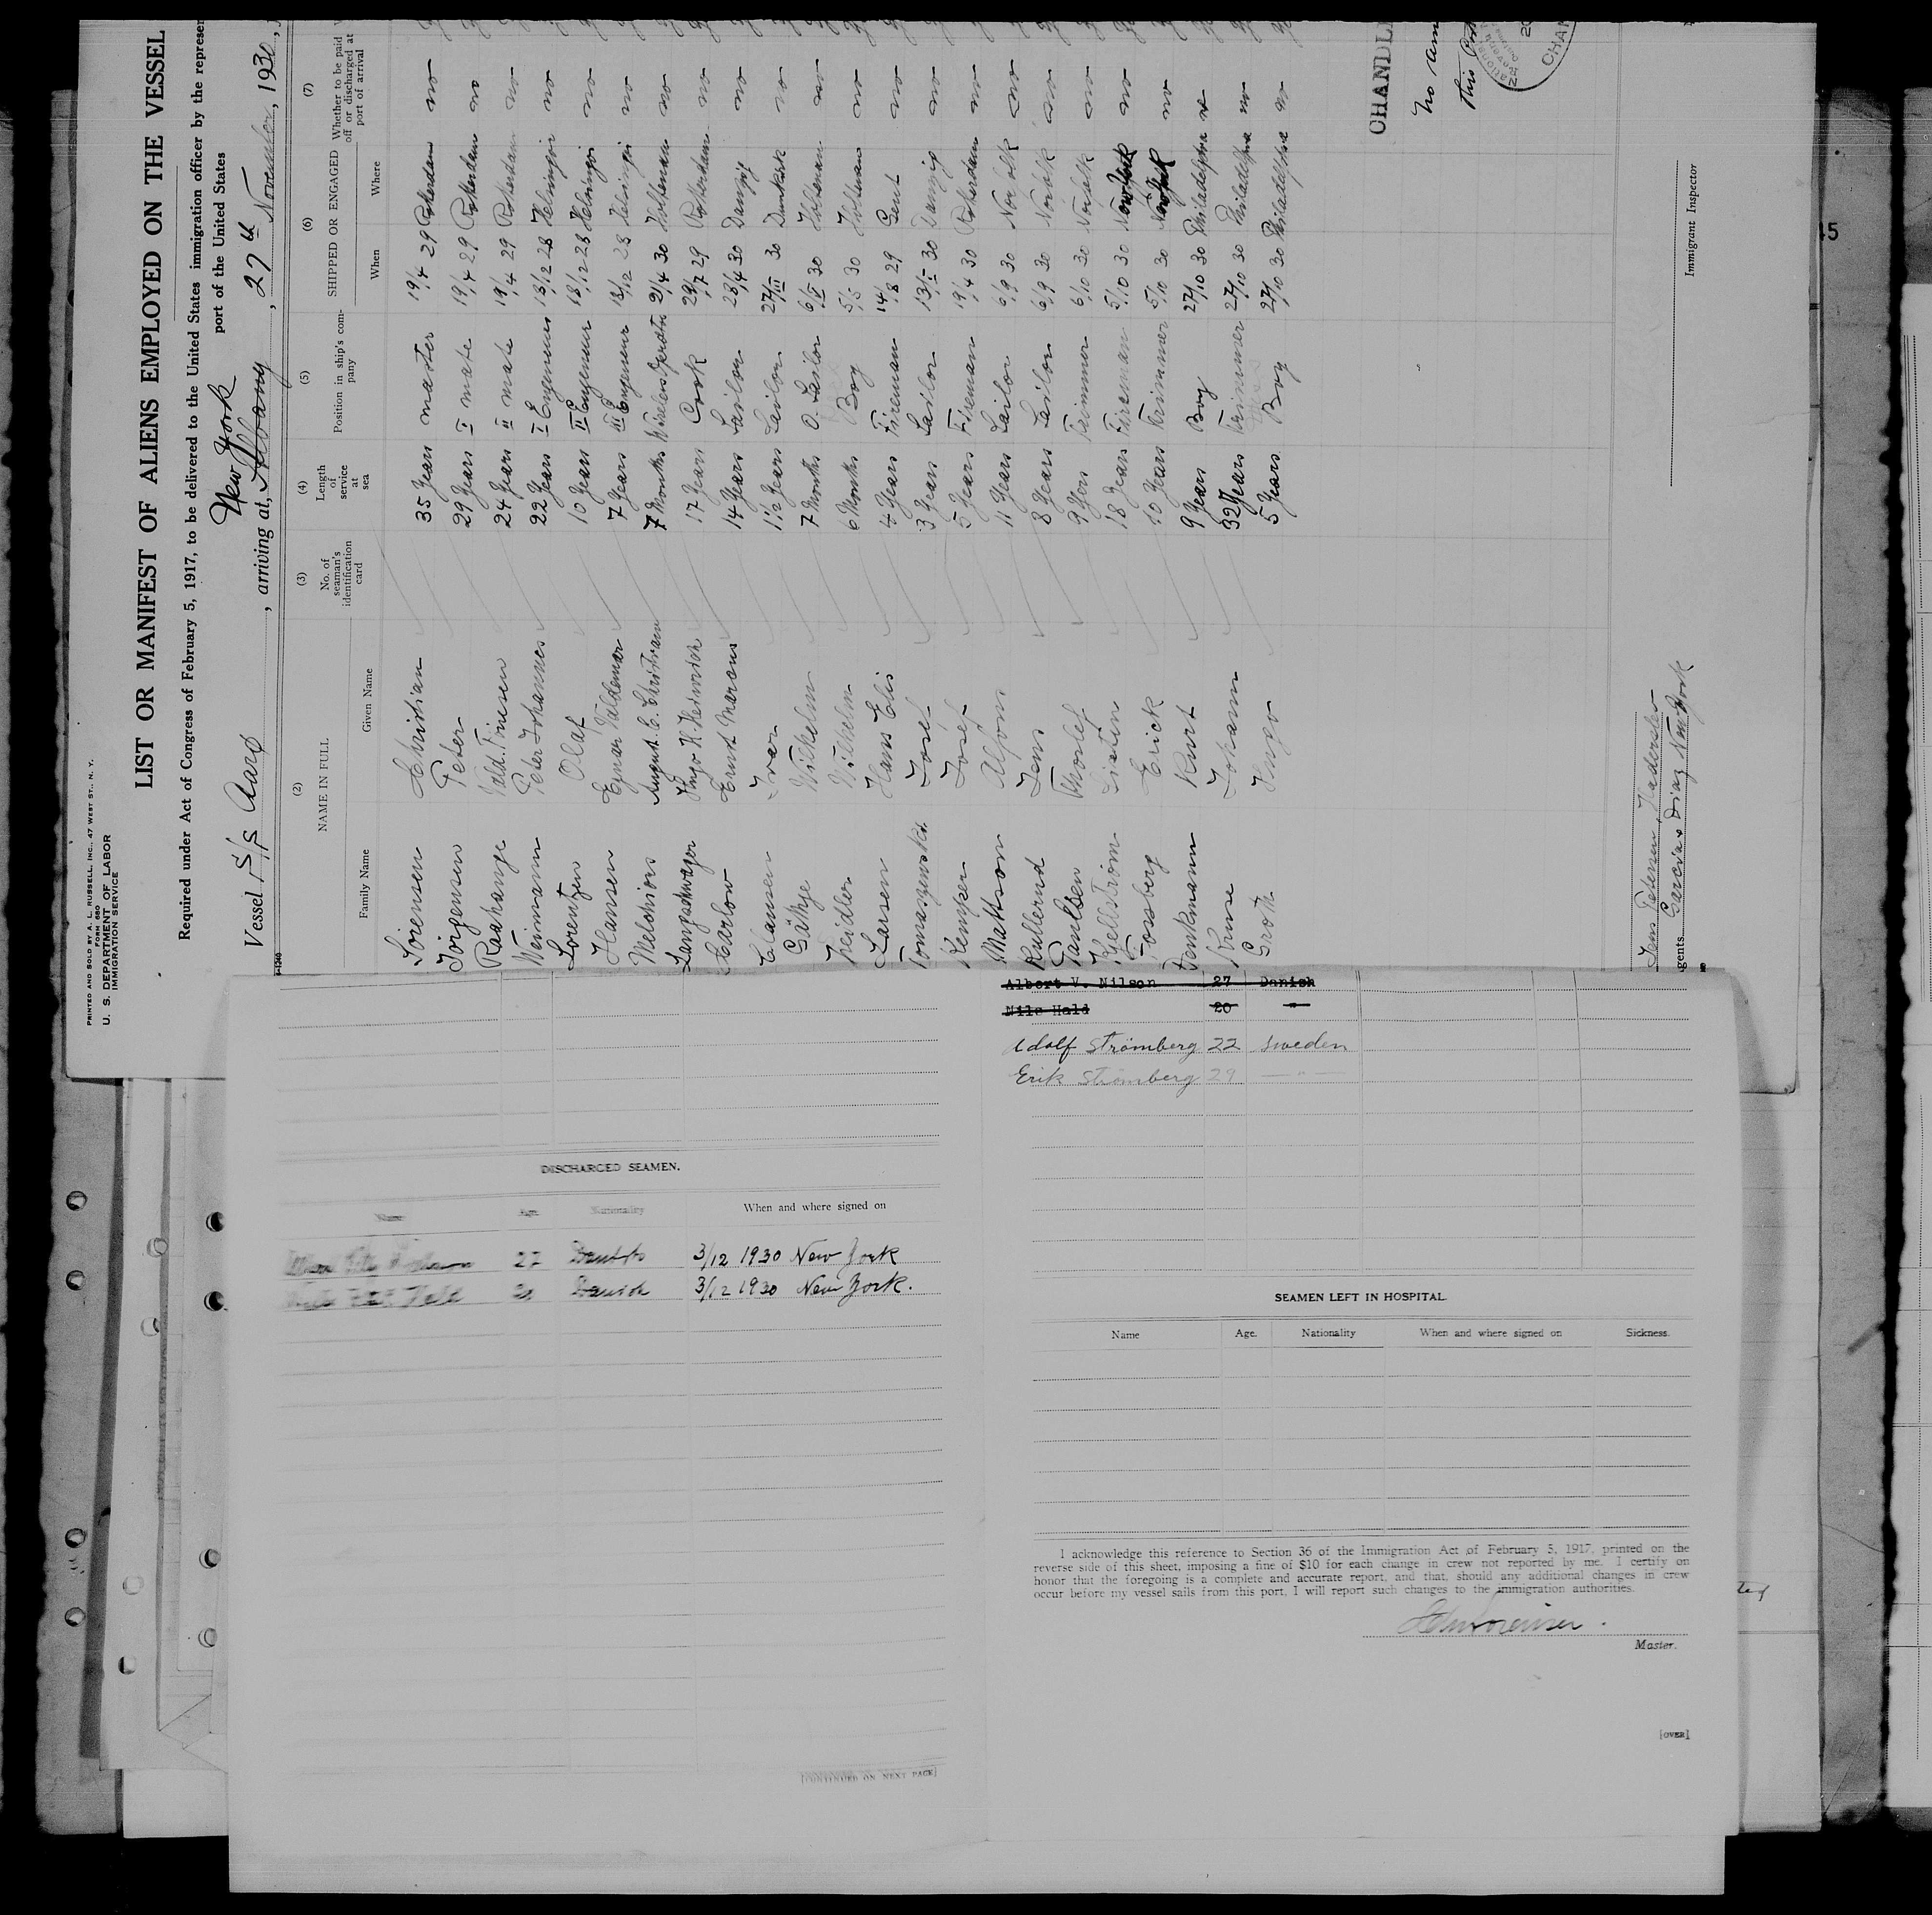 PRINTED AND SOLD BY A. L. RUSSELL, INC., 47 WEST ST., N. Y.
FORM 680
U. S. DEPARTMENT OF LABOR
IMMIGRATION SERVICE
LIST OR MANIFEST OF ALIENS EMPLOYED ON THE VESSEL
Required under Act of Congress of February 5, 1917, to be delivered to the United States immigration officer by the represen
port of the United States
New York
Vessel S/S Aarø, arriving at Albany, 27th November, 1930,
(2) (3) (4) (5) (6) (7)
NAME IN FULL No. of seaman's identification card Length of service at sea Position in ship's company SHIPPED OR ENGAGED Whether to be paid off or discharged at port of arrival
Family Name Given Name When Where
Sörensen Christian 35 Years master 19/4 29 Rotterdam no
Jörgensen Peter 29 Years I mate 19/4 29 Rotterdam no
Raahauge Vald. 24 Years II mate 19/4 29 Rotterdam no
Weimann Peter Johannes 22 Years I Engeneer 13/12 28 Helsingör no
Lorentzen Olaf 10 Years II Engeneer 13/12 28 Helsingör no
Hansen Ejnar Valdemar 7 Years III Engeneer 13/12 28 Helsingör no
Melchiors August C. Christian 7 Months Wireless Operator 21/4 30 Holtenau no
Langschwager Hugo H. Heinrich 17 Years Cook 29/7 29 Rotterdam no
Carlow Ernst Marcus 14 Years Sailor 28/4 30 Danzig no
Clausen Iver 1 1/2 Years Sailor 27/III 30 Dunkirk no
Gäthje Wilhelm 7 Months O. Sailor 6/V 30 Holtenau no
Wilhelm 6 Months Boy 5/5 30 Holtenau no
Larsen Hans Elis 4 Years Fireman 14/8 29 Gent no
Tomaszewski Josef 3 Years Sailor 13/V 30 Danzig no
Kemper Josef 5 Years Fireman 19/4 30 Rotterdam no
Mattson Alfons 11 Years Sailor 6/9 30 Norfolk no
Kullerud Jens 8 Years Sailor 6/9 30 Norfolk no
Paulsen Thorlef 9 Years Trimmer 6/10 30 Norfolk no
Kjellström 18 Years Fireman 5/10 30 Norfolk no
Fossberg Erick 10 Years Trimmer 5/10 30 Norfolk no
Denkmann Kurt 9 Years Boy 27/10 30 Philadelphia no
Johann 32 Years Trimmer 27/10 30 Philadelphia no
Groth Hugo 5 Years Boy 27/10 30 Philadelphia no
CHANDL
No
This
CHAN
Jens Petersen, Haderslev
gents Garcia & Diaz New York
Immigrant Inspector
Albert V. Nilson 27 Danish
Nils Hald 20 "
Adolf Strömberg 22 Sweden
Erik Strömberg 29 — " —
DISCHARGED SEAMEN.
Name Age. Nationality When and where signed on
27 Danish 3/12 1930 New York
Danish 3/12 1930 New York.
[CONTINUED ON NEXT PAGE]
SEAMEN LEFT IN HOSPITAL.
Name Age. Nationality When and where signed on Sickness.
I acknowledge this reference to Section 36 of the Immigration Act of February 5, 1917, printed on the
reverse side of this sheet, imposing a fine of $10 for each change in crew not reported by me. I certify on
honor that the foregoing is a complete and accurate report, and that, should any additional changes in crew
occur before my vessel sails from this port, I will report such changes to the immigration authorities.
Master.
[OVER]